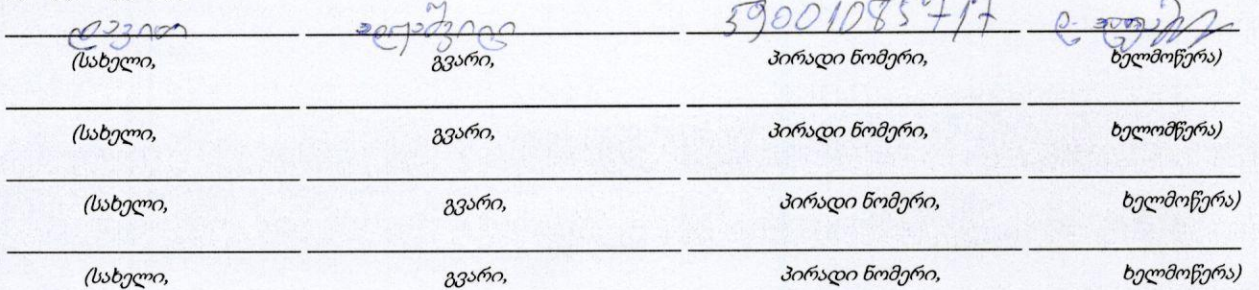 დავით 59001085717
(სახელი, გვარი, პირადი ნომერი, ხელმოწერა)
(სახელი, გვარი, პირადი ნომერი, ხელომწერა)
(სახელი, გვარი, პირადი ნომერი, ხელმოწერა)
(სახელი, გვარი, პირადი ნომერი, ხელმოწერა)